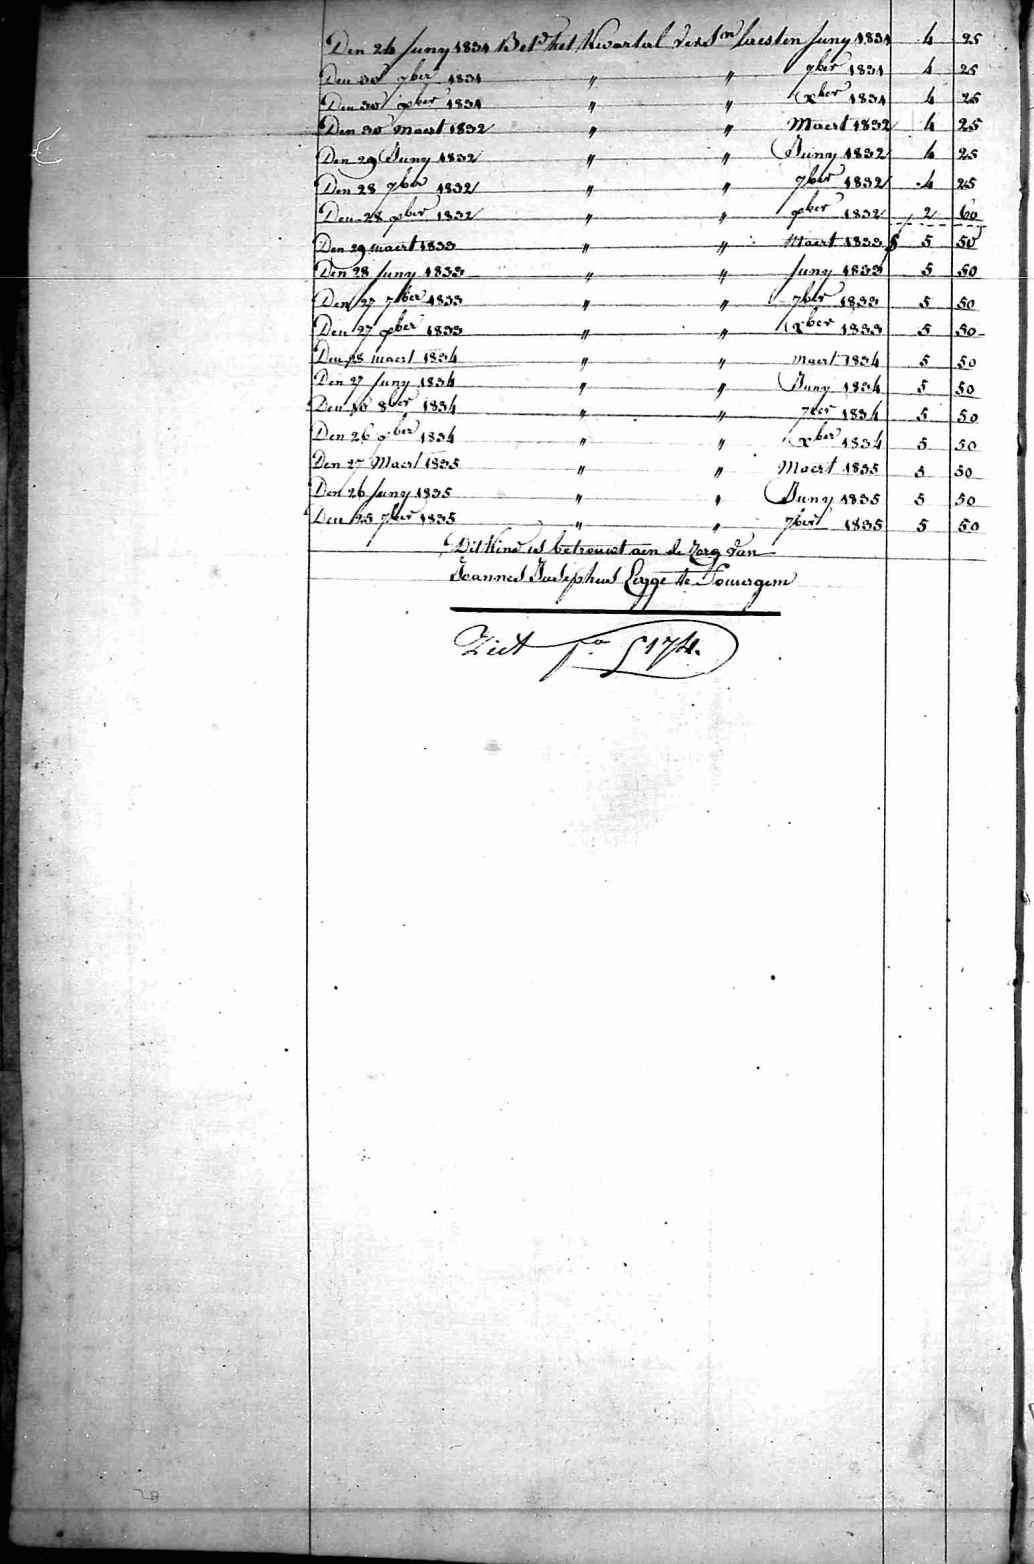 Den 24 Juny 1831 Bet.d het Kwartal vers.en laesten Juny 1831 4 25
Den 30 7ber 1831 " " 7ber 1831 4 25
Den 30 xber 1831 " " xber 1831 4 25
Den 30 maert 1832 " " Maert 1832 4 25
Den 29 Juny 1832 " " Juny 1832 4 25
Den 28 7ber 1832 " " 7ber 1832 4 25
Den 28 xber 1832 " " xber 1832 2 60
Den 29 maert 1833 " " Maert 1833 5 50
Den 28 Juny 1833 " " Juny 1833 5 50
Den 27 7ber 1833 " " 7ber 1833 5 50
Den 27 xber 1833 " " xber 1833 5 50
Den 28 maert 1834 " " maert 1834 5 50
Den 27 Juny 1834 " " Juny 1834 5 50
Den 10 8ber 1834 " " 7ber 1834 5 50
Den 26 xber 1834 " " xber 1834 5 50
Den 27 Maert 1835 " " Maert 1835 5 50
Den 26 Juny 1835 " " Juny 1835 5 50
Den 25 7ber 1835 " " 7ber 1835 5 50
Dit Kind is betrouwt aen de zorg van
Joannes Josephus Legge te Somergem
Ziet fo 174.